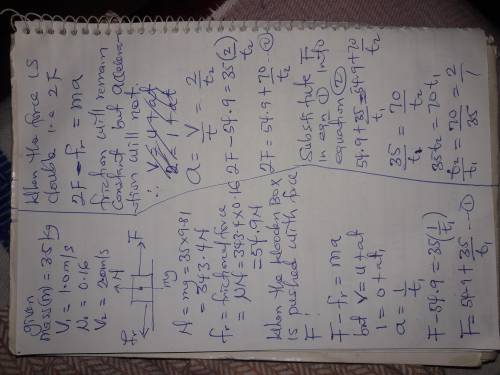 given
Mass(m) = 35kg
V1 = 1.0m/s
μ = 0.16
V2 = 2.0m/s
fr
N
F
mg
N = mg = 35×9.81
= 343.4N
fr = frictional force
= μN = 343.4×0.16
= 54.9N
When the wooden box
is pushed with
F
F - fr = ma
but V = u+at
1 = 0+at1
a = 1/t1
F - 54.9 = 35(1/t1)
F = 54.9 + 35/t1 — ①
When the force is
double i.e 2F
2F - fr = ma
friction will remain
constant but accelera-
tion will not
∴ V = u+at
a = V/t = 2/t2
2F - 54.9 = 35(2/t2)
2F = 54.9 + 70/t2 — ②
Substitute F
in eqn ① into
equation ②
54.9 + 35/t1 = 54.9 + 70/t2
35/t1 = 70/t2
35t2 = 70t1
t2/t1 = 70/35 = 2/1